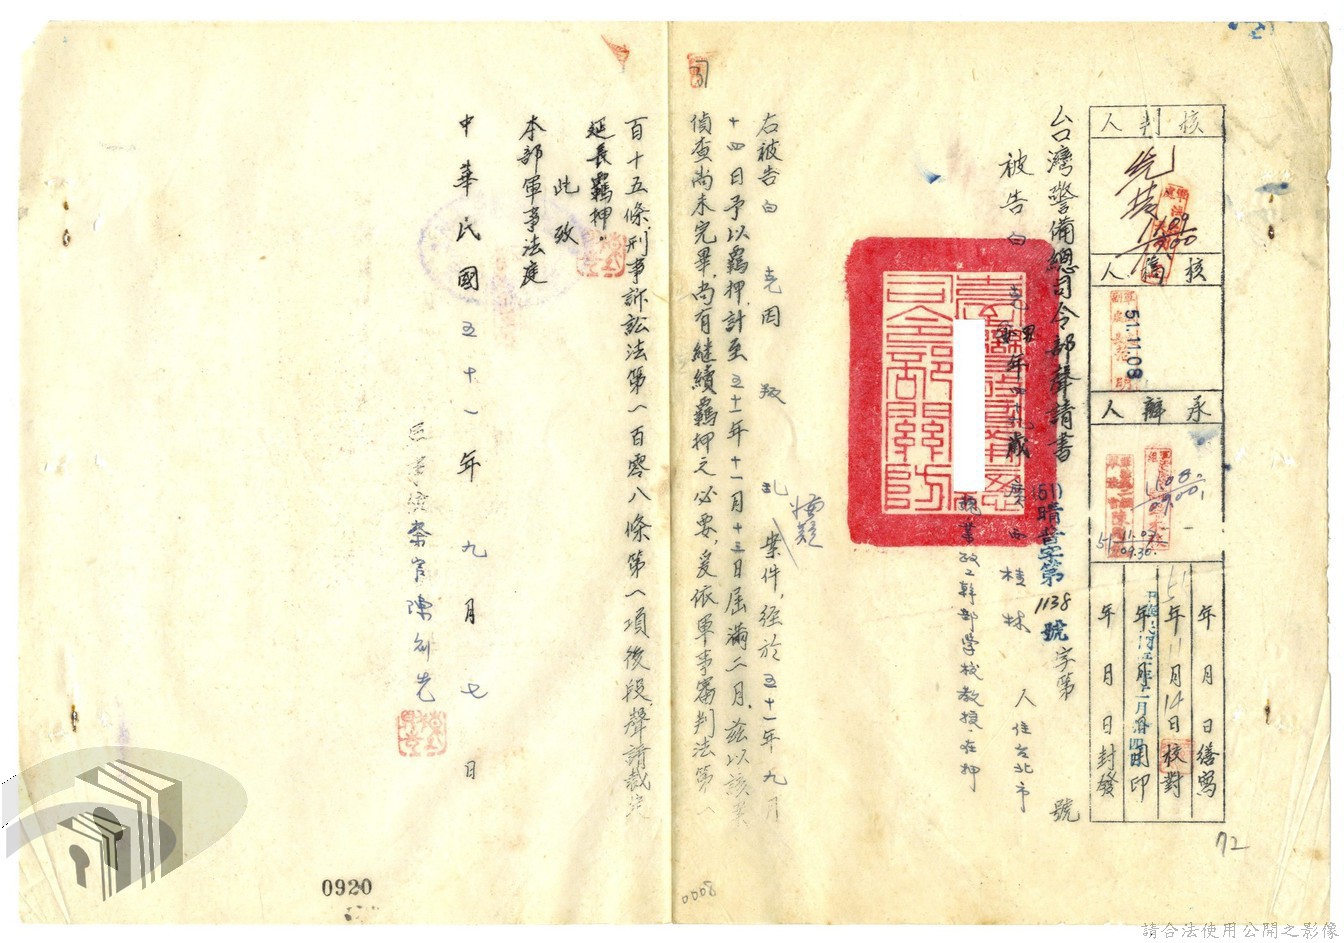 核判人
核稿人
51.11.08
承辦人
年 月 日繕寫
51年11月14日校對
年 月 日用印
年 月 日封發
台灣警備總司令部聲請書 (51)晴普字第1138號 字第 號
被告白 克 男 年四十九歲 廣西桂林 人住台北市
執業政工幹部學校教授·在押
右被告白 克因 叛 亂 嫌疑 案件,經於五十一年九月
十四日予以羈押,計至五十一年十一月十三日屆滿二月,茲以該案
偵查尚未完畢,尚有繼續羈押之必要,爰依軍事審判法第一
百十五條、刑事訴訟法第一百零八條第一項後段,聲請裁定
延長羈押。
此致
本部軍事法庭
軍事檢察官陳
中華民國五十一年 九 月 七 日
72
0920
0008
請合法使用公開之影像